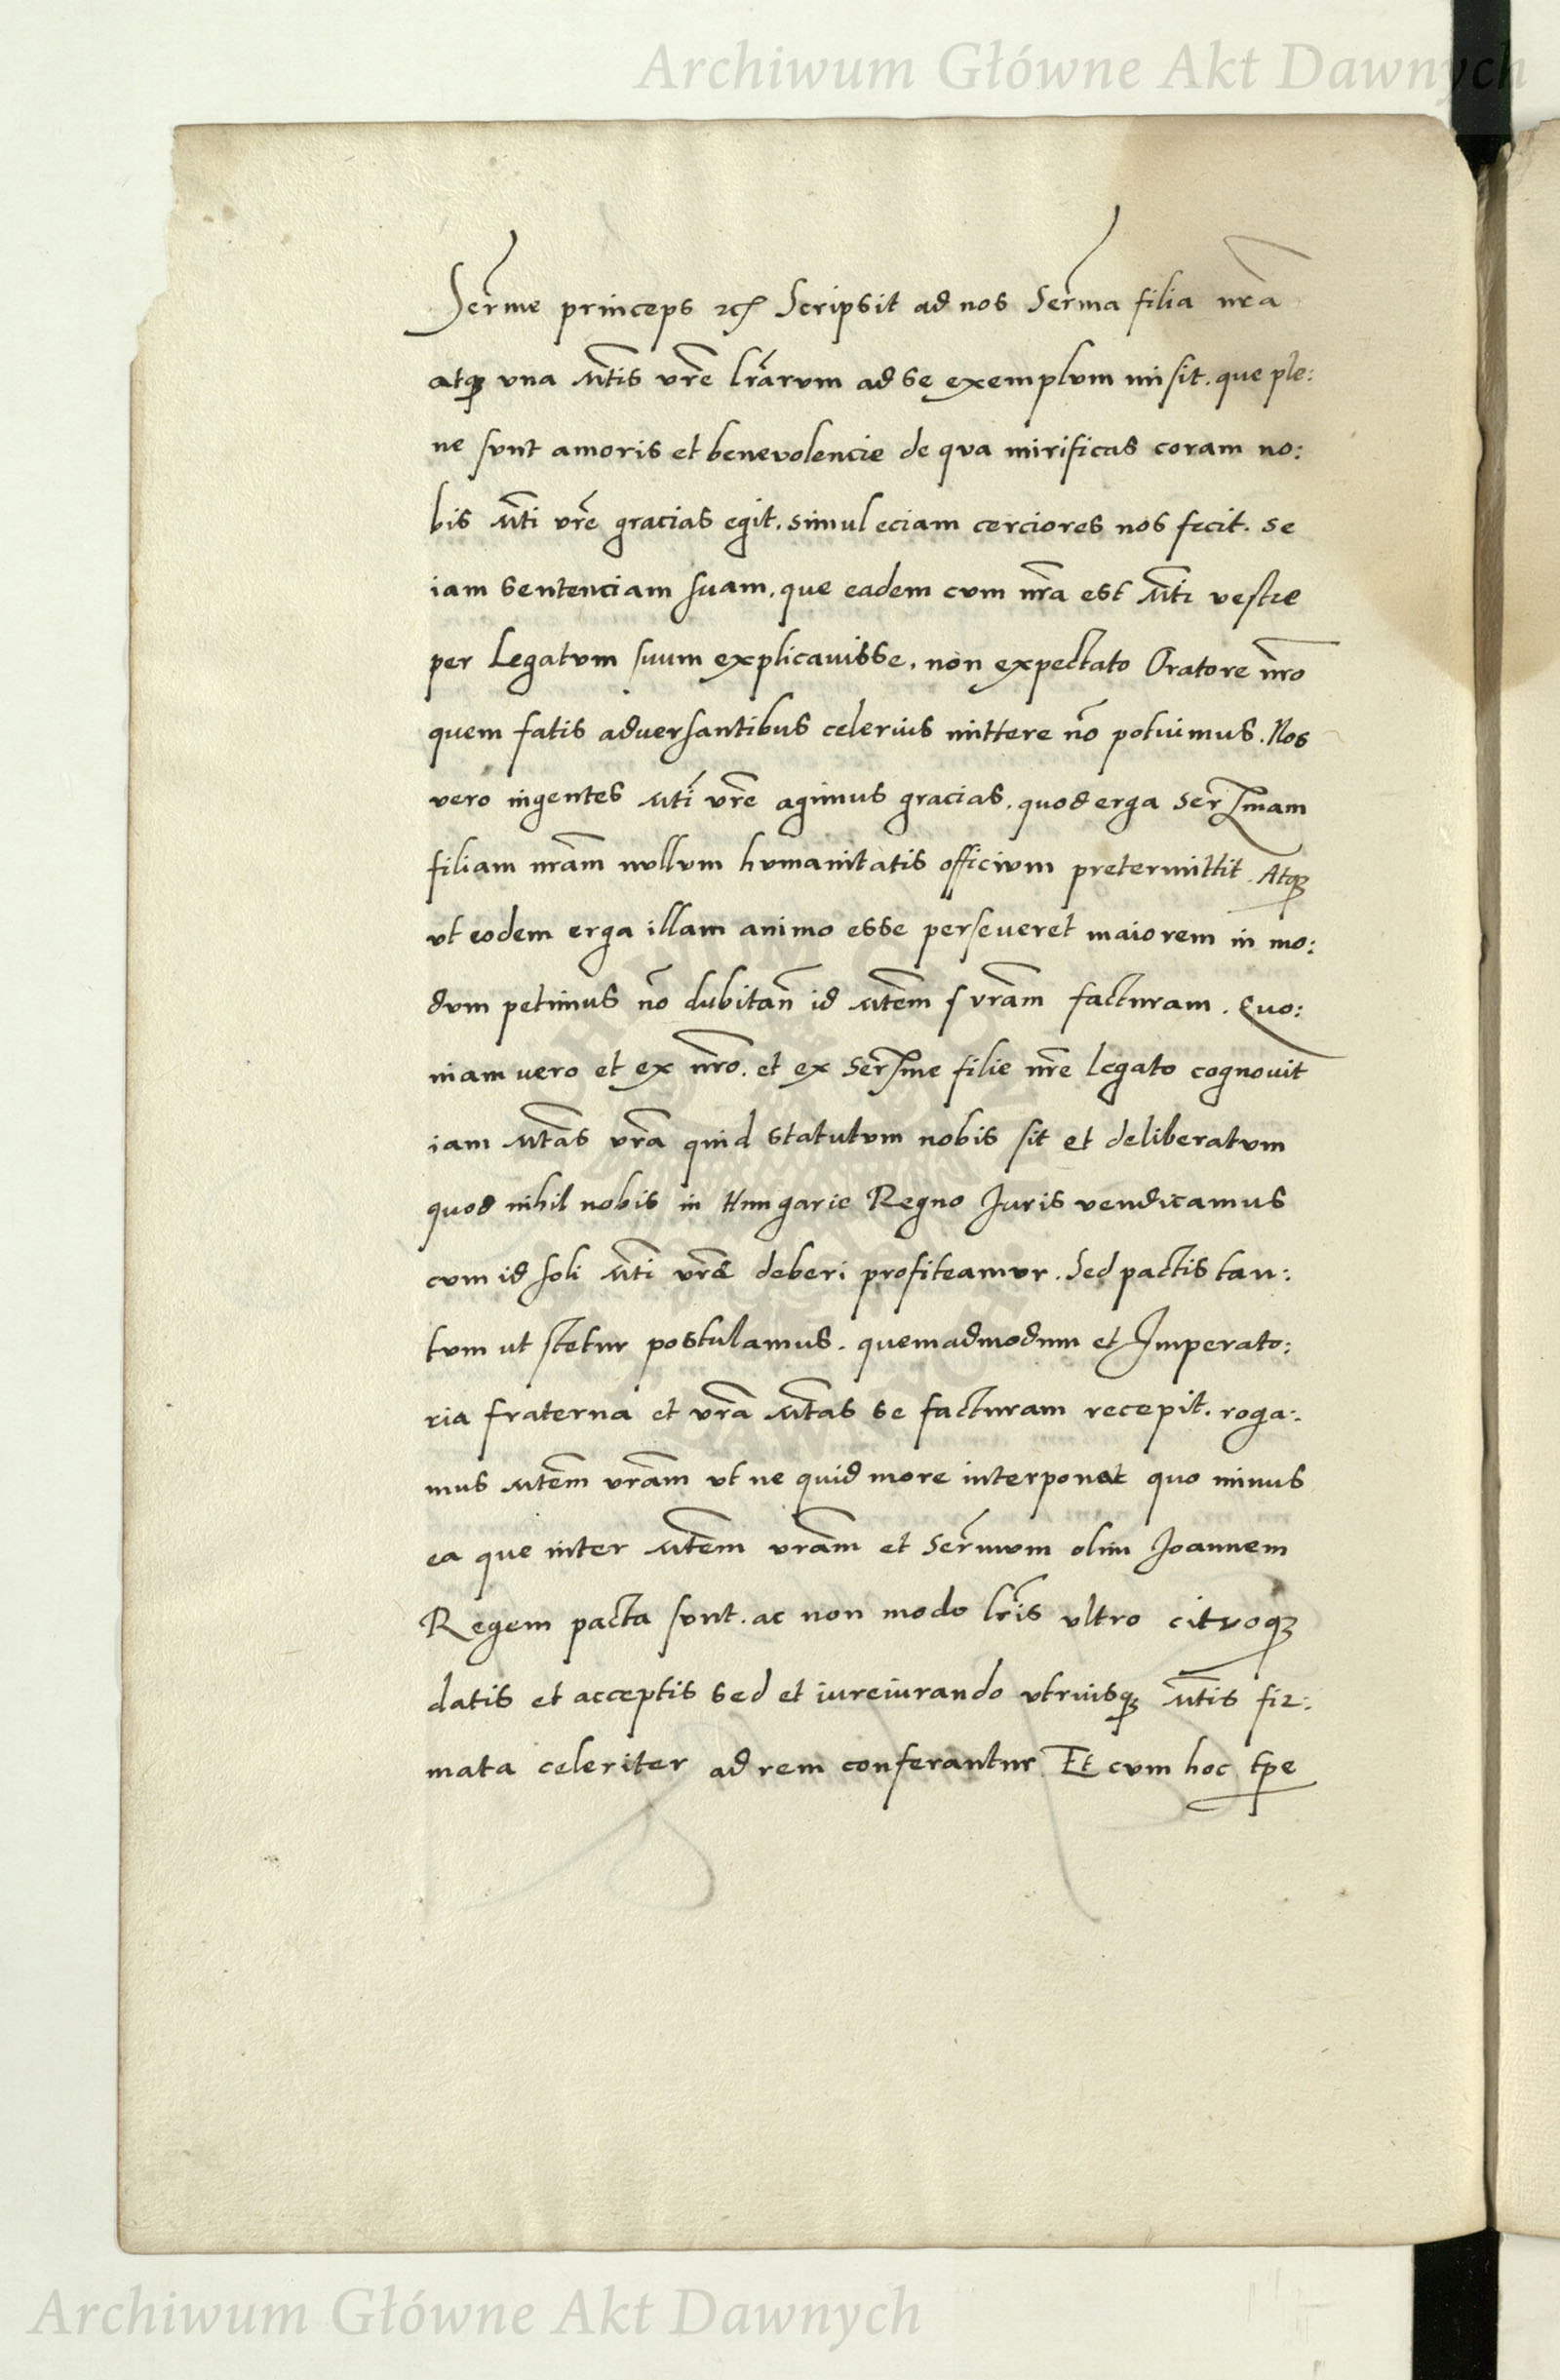 Archiwum Główne Akt Dawnych
Serme princeps etc Scripsit ad nos Serma filia nra
atq vna Mtis vre lrarvm ad se exemplvm misit. que ple:
ne svnt amoris et benevolencie de qva mirificas coram no:
bis Mti vre gracias egit. simul eciam cerciores nos fecit. se
iam sentenciam suam, que eadem cvm nra est Mti vestre
per Legatvm suum explicauisse, non expectato Oratore nro
quem fatis aduersantibus celerius mittere no potuimus. Nos
vero ingentes Mti vre agimus gracias, quod erga Serimam
filiam nram nvllvm hvmanitatis officivm pretermittit. Atq
vt eodem erga illam animo esse perseueret maiorem in mo:
dvm petimus no dubitan id Mtem vram facturam. Quo:
niam vero et ex nro. et ex Serime filie nre legato cognouit
iam Mtas vra quid statutvm nobis sit et deliberatvm
quod nihil nobis in Hungarie Regno Juris vendicamus
cvm id soli Mti vre deberi profiteamvr. Sed pactis tan:
tvm ut stetur postulamus. quemadmodum et Imperato:
ria fraterna et vra Mtas se facturam recepit. roga:
mus Mtem vram vt ne quid more interponat quo minus
ea que inter Mtem vram et Sermvm olim Joannem
Regem pacta svnt. ac non modo lris vltro citvoq
datis et acceptis sed et iureiurando vtriusq Mtis fir:
mata celeriter ad rem conferantur. Et cvm hoc tpe
Archiwum Główne Akt Dawnych